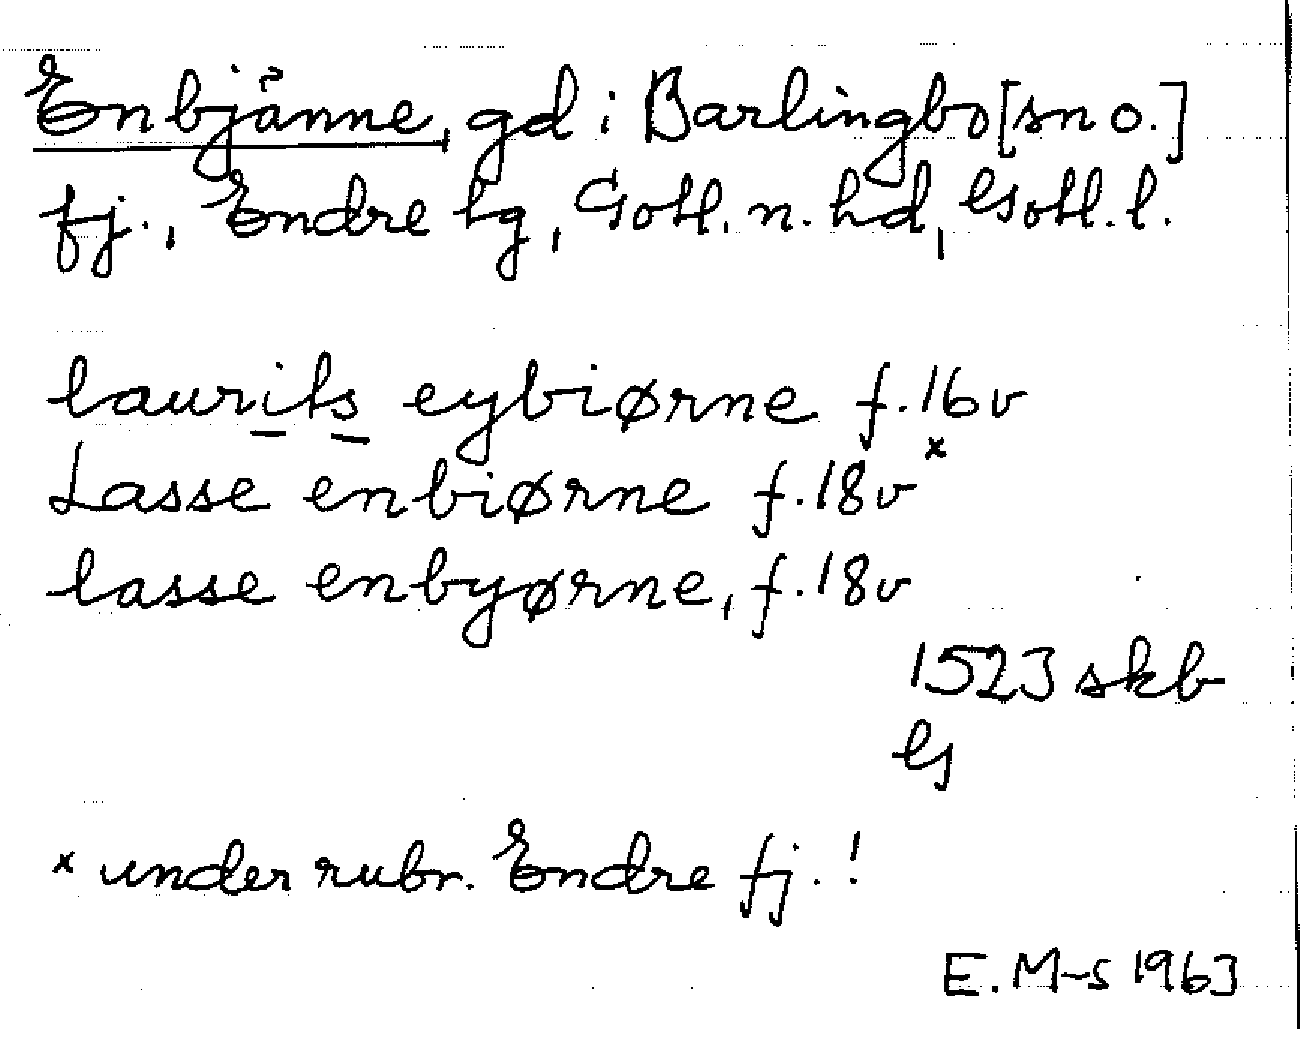 Enbjänne, gd i Barlingbo [sn o.]
fj., Endre tg, Gotl. n. hd, Gotl. l.
laurits eybiørne f. 16 v
Lasse enbiørne f. 18 v x
lasse enbyørne, f. 18 v
1523 skb
G
x under rubr. Endre fj.!
E. M-s 1963